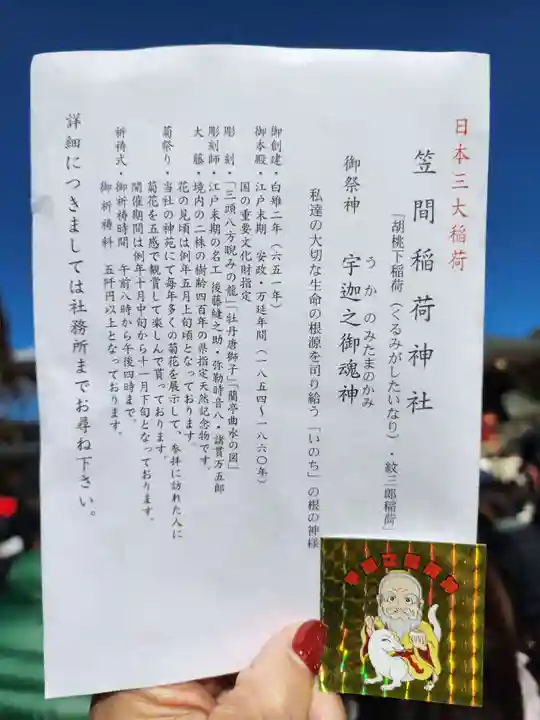 日本三大稲荷
笠間稲荷神社
「胡桃下稲荷(くるみがしたいなり)・紋三郎稲荷」
御祭神 宇迦之御魂神
うかのみたまのかみ
私達の大切な生命の根源を司り給う「いのち」の根の神様
御創建・白雉二年(六五一年)
御本殿・江戸末期 安政・万延年間(一八五四~一八六〇年)
国の重要文化財指定
彫刻・「三頭八方睨みの龍」「牡丹唐獅子」「蘭亭曲水の図」
彫刻師・江戸末期の名工 後藤縫之助・弥勒時音八・諸貫万五郎
大藤・境内の二株の樹齢四百年の県指定天然記念物です。
花の見頃は例年五月上旬頃となっております。
菊祭り・当社の神苑にて毎年多くの菊花を展示して、参拝に訪れた人に
菊花を五感で観賞して楽しんで貰っております。
開催期間は例年十月中旬から十一月下旬となっております。
祈祷式・御祈祷時間 午前八時から午後四時まで。
御祈祷料 五阡円以上となっております。
詳細につきましては社務所までお尋ね下さい。